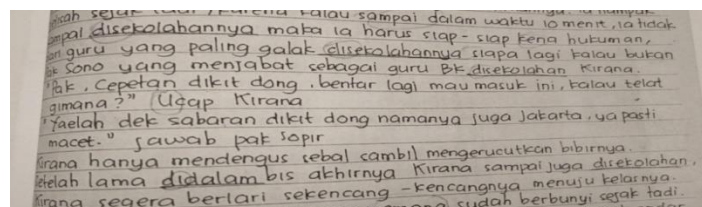 sejak tadi, karena kalau sampai dalam waktu 10 menit, ia tidak
disekolahannya maka ia harus siap-siap kena hukuman,
guru yang paling galak disekolahannya siapa lagi kalau bukan
Sono yang menjabat sebagai guru BK disekolahan Kirana.
"Pak, Cepetan dikit dong, bentar lagi mau masuk ini, kalau telat
gimana?" Ucap Kirana
"Yaelah dek sabaran dikit dong namanya juga Jakarta, ya pasti
macet." Jawab pak sopir
Kirana hanya mendengus sebal sambil mengerucutkan bibirnya.
Setelah lama didalam bis akhirnya Kirana sampai juga disekolahan.
Kirana segera berlari sekencang-kencangnya menuju kelasnya.
sudah berbunyi sejak tadi.